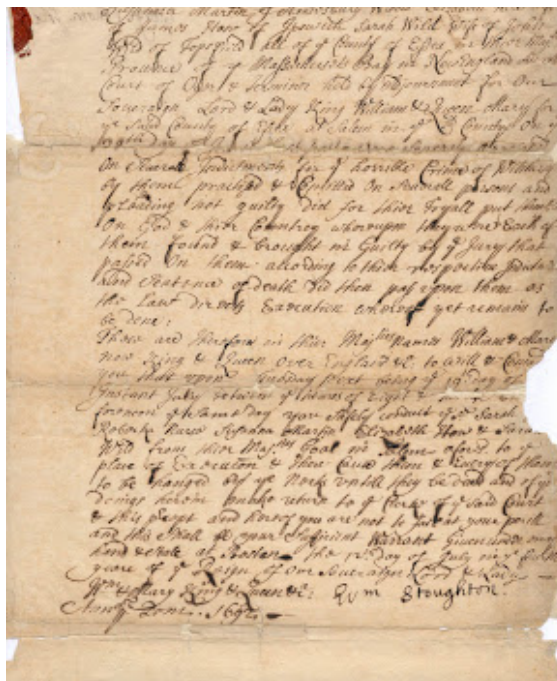 Susannah Martin of Amesbury Widow Elizabeth How wife
of James How of Ipswich Sarah Wild Wife of John
Wild of Topsfield all of yᵉ County of Essex in
Province of yᵉ Massachusetts Bay in New England
Court of Oyer & Terminer held by adjournment for Our
Soveraign Lord & Lady King William & Queen Mary for
yᵉ said County of Essex at Salem in yᵉ sᵈ County on
were Severaly arraigned
On Several Indictments for yᵉ horrible Crime of Witchcraft
by them practised & Comitted On Severall persons and
pleading not guilty did for their Tryall put themselves
On God & thier Countrey whereupon they were Each of
them Found & brought in Guilty by yᵉ Jury that
passed On them according to their respective Indictments
and Sentence of death did then pass upon them as
the Law directs Execution whereof yet remains to
be done:
Those are therefore in thier Majties Names William & Mary
now King & Queen over England &c: to will & Comand
you that upon Tuesday Next being yᵉ 19th day of
Instant July between yᵉ houres of Eight &
forenoon yᵉ same day you Safely conduct yᵉ sᵈ Sarah
Rebecka Nurse Susanna Martin Elizabeth How & Sarah
Wild from their Majties Goal in Salem aforesd to yᵉ
place of Execution & there Cause them & Every of them
to be hanged by yᵉ Neck untill they be dead and of yᵉ
doings herein make return to yᵉ Clerke of yᵉ said Court
& this precept and hereof you are not to fail at your perill
and this Shall be your sufficient Warrant Given under my
hand & seale at Boston the 12th day of July in yᵉ fourth
yeare of yᵉ Reign of Our Soveraign Lord & Lady
Wm & Mary King & Queen &c: Wm Stoughton
Annoq Dom. 1692